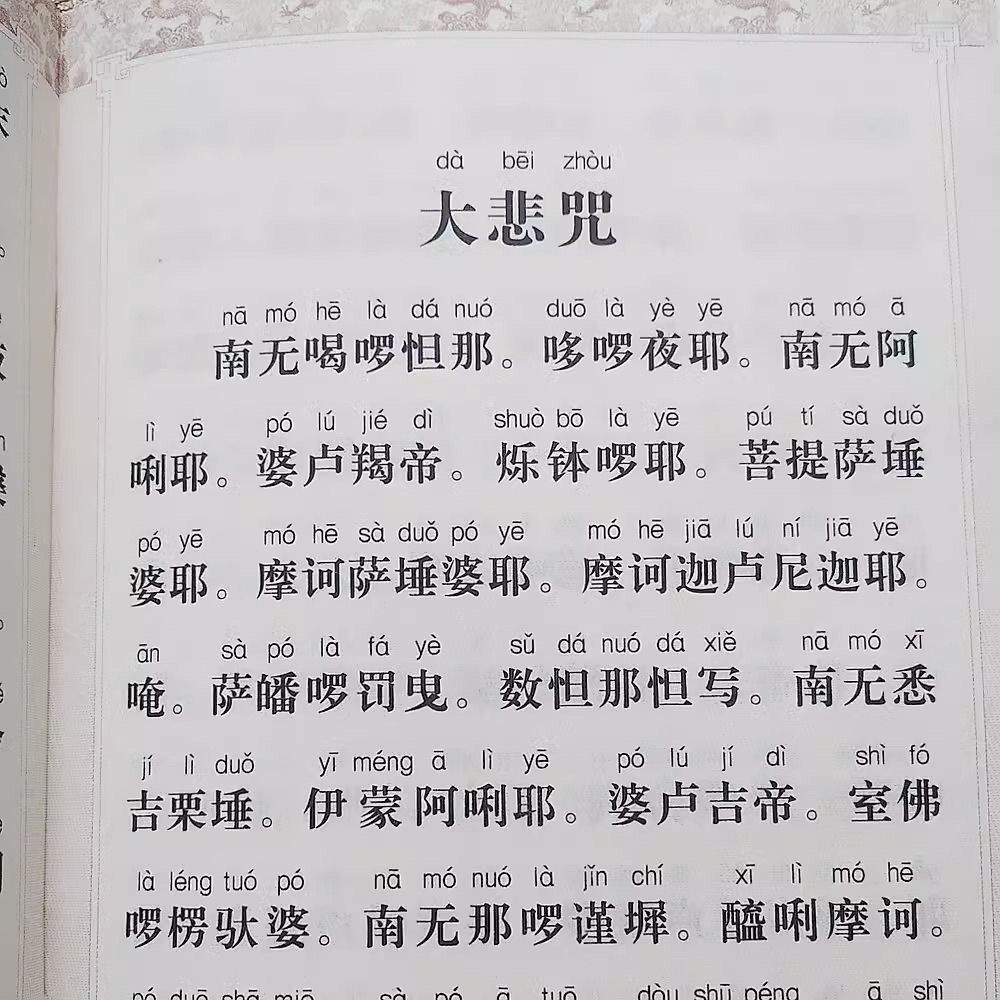 dà bēi zhòu
大悲咒
nā mó hē là dá nuó duō là yè yē nā mó ā
南无喝啰怛那。哆啰夜耶。南无阿
lì yē pó lú jié dì shuò bō là yē pú tí sà duǒ
唎耶。婆卢羯帝。烁钵啰耶。菩提萨埵
pó yē mó hē sà duǒ pó yē mó hē jiā lú ní jiā yē
婆耶。摩诃萨埵婆耶。摩诃迦卢尼迦耶。
ān sà pó là fá yè sǔ dá nuó dá xiě nā mó xī
唵。萨皤啰罚曳。数怛那怛写。南无悉
jí lì duǒ yī méng ā lì yē pó lú jí dì shì fó
吉栗埵。伊蒙阿唎耶。婆卢吉帝。室佛
là léng tuó pó nā mó nuó là jǐn chí xī lì mó hē
啰楞驮婆。南无那啰谨墀。醯唎摩诃。
pó duō shā miē sà pó ā tuō dòu shū péng ā shì